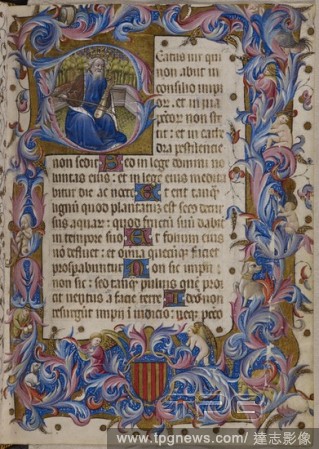 Eatus vir qui
non abiit in
consilio impi
or: et in via
peccatorum non ste
tit: et in cathe
dra pestilencie
non sedit Sed in lege domini vo
luntas eius: et in lege eius medita
bitur die ac nocte Et erit tanq
lignum quod plantatum est secus decur
sus aquar: quod fructum suum dabit
in tempore suo Et folium eius
non defluet: et omnia quecunq faciet
prosperabuntur Non sic impii
non sic: sed tanq pulvis que proi
cit ventus a facie terre Ideo non
resurgunt impii i iudicio: neq pecco
www.tpgnews.com/達志影像